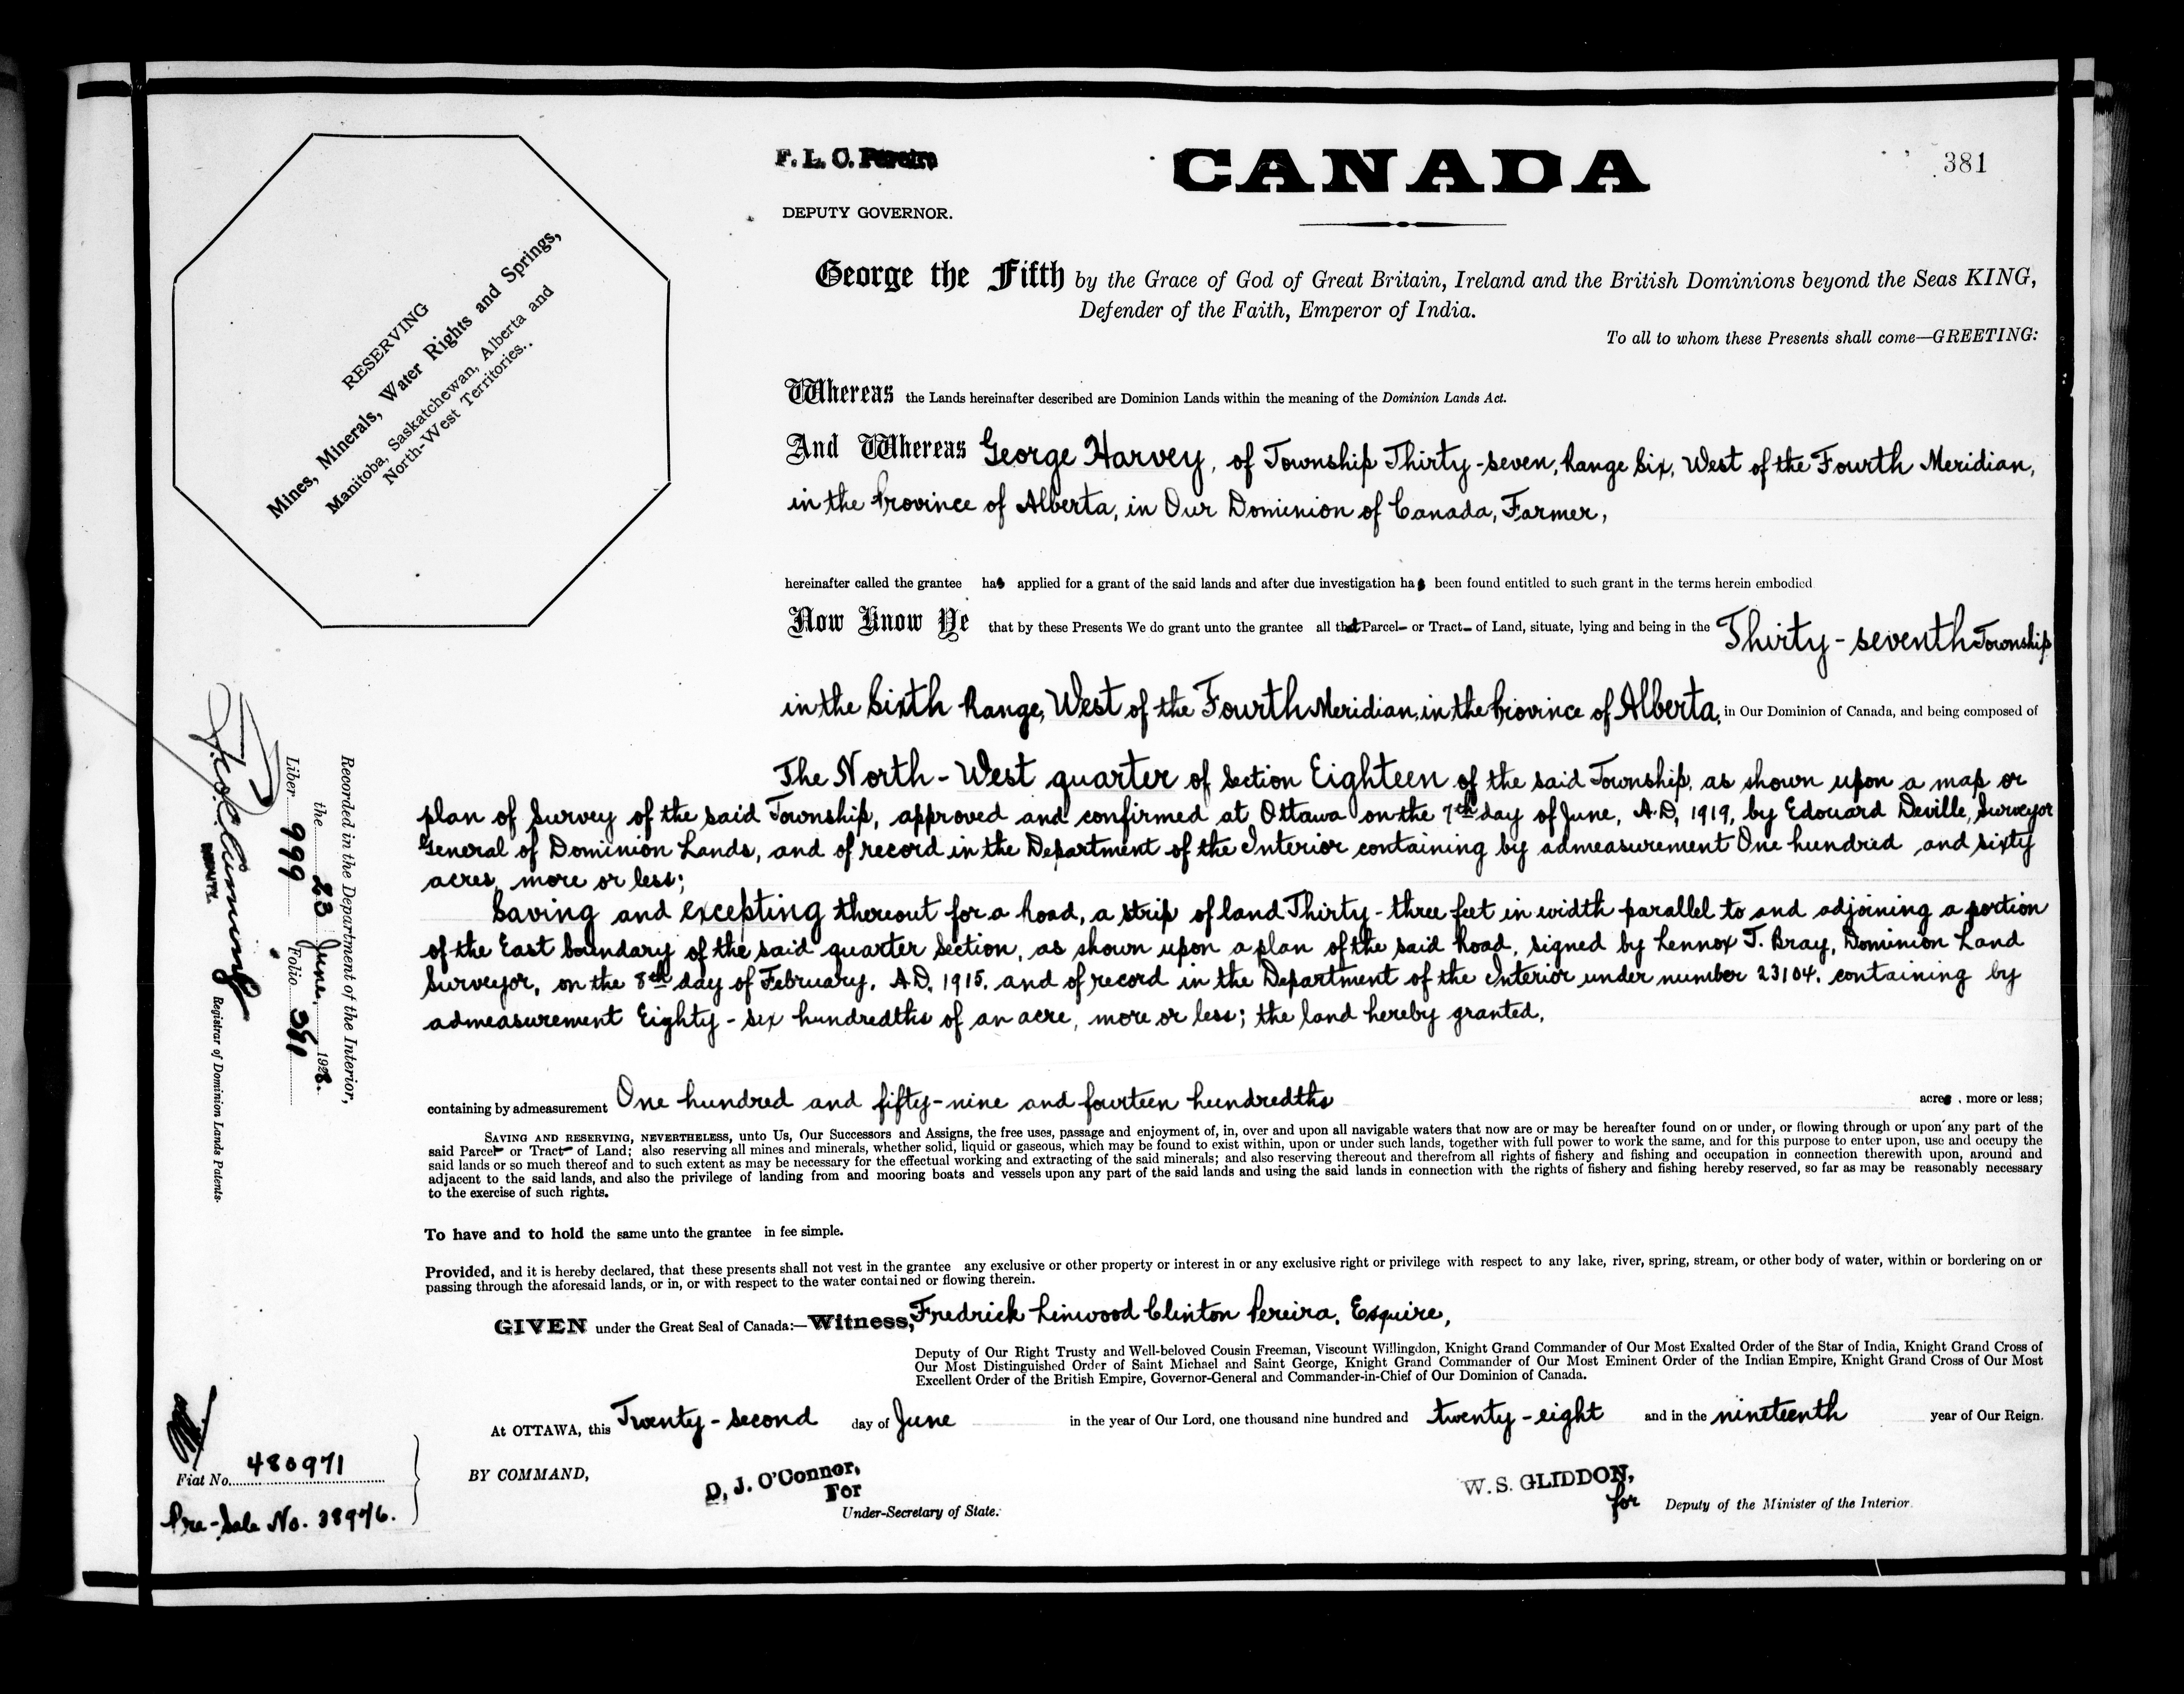 F. L. C. Pereira
DEPUTY GOVERNOR.
CANADA
381
RESERVING
Mines, Minerals, Water Rights and Springs,
Manitoba, Saskatchewan, Alberta and
North-West Territories..
George the Fifth by the Grace of God of Great Britain, Ireland and the British Dominions beyond the Seas KING,
Defender of the Faith, Emperor of India.
To all to whom these Presents shall come—GREETING:
Whereas the Lands hereinafter described are Dominion Lands within the meaning of the Dominion Lands Act.
And Whereas George Harvey, of Township Thirty-seven, Range Six, West of the Fourth Meridian,
in the Province of Alberta, in Our Dominion of Canada, Farmer,
hereinafter called the grantee has applied for a grant of the said lands and after due investigation has been found entitled to such grant in the terms herein embodied
Now Know Ye that by these Presents We do grant unto the grantee all that Parcel or Tract of Land, situate, lying and being in the Thirty-seventh Township
in the Sixth Range, West of the Fourth Meridian, in the Province of Alberta, in Our Dominion of Canada, and being composed of
The North-West quarter of Section Eighteen of the said Township, as shown upon a map or
plan of Survey of the said Township, approved and confirmed at Ottawa on the 7th day of June, A.D, 1919, by Edouard Deville, Surveyor
General of Dominion Lands, and of record in the Department of the Interior containing by admeasurement One hundred and sixty
acres, more or less;
Saving and excepting thereout for a Road, a strip of land Thirty-three feet in width parallel to and adjoining a portion
of the East boundary of the said quarter Section, as shown upon a plan of the said Road, signed by Lennox T. Bray, Dominion Land
Surveyor, on the 8th day of February, A.D, 1915. and of record in the Department of the Interior under number 23104. containing by
admeasurement Eighty-six hundredths of an acre, more or less; the land hereby granted,
containing by admeasurement One hundred and fifty-nine and fourteen hundredths acres, more or less;
SAVING AND RESERVING, NEVERTHELESS, unto Us, Our Successors and Assigns, the free uses, passage and enjoyment of, in, over and upon all navigable waters that now are or may be hereafter found on or under, or flowing through or upon any part of the
said Parcel or Tract of Land; also reserving all mines and minerals, whether solid, liquid or gaseous, which may be found to exist within, upon or under such lands, together with full power to work the same, and for this purpose to enter upon, use and occupy the
said lands or so much thereof and to such extent as may be necessary for the effectual working and extracting of the said minerals; and also reserving thereout and therefrom all rights of fishery and fishing and occupation in connection therewith upon, around and
adjacent to the said lands, and also the privilege of landing from and mooring boats and vessels upon any part of the said lands and using the said lands in connection with the rights of fishery and fishing hereby reserved, so far as may be reasonably necessary
to the exercise of such rights.
To have and to hold the same unto the grantee in fee simple.
Provided, and it is hereby declared, that these presents shall not vest in the grantee any exclusive or other property or interest in or any exclusive right or privilege with respect to any lake, river, spring, stream, or other body of water, within or bordering on or
passing through the aforesaid lands, or in, or with respect to the water contained or flowing therein.
GIVEN under the Great Seal of Canada:—Witness, Fredrick Linwood Clinton Pereira, Esquire,
Deputy of Our Right Trusty and Well-beloved Cousin Freeman, Viscount Willingdon, Knight Grand Commander of Our Most Exalted Order of the Star of India, Knight Grand Cross of
Our Most Distinguished Order of Saint Michael and Saint George, Knight Grand Commander of Our Most Eminent Order of the Indian Empire, Knight Grand Cross of Our Most
Excellent Order of the British Empire, Governor-General and Commander-in-Chief of Our Dominion of Canada.
At OTTAWA, this Twenty-second day of June in the year of Our Lord, one thousand nine hundred and twenty-eight and in the nineteenth year of Our Reign.
BY COMMAND,
D. J. O'Connor,
For
Under-Secretary of State.
W. S. GLIDDON,
for Deputy of the Minister of the Interior.
Recorded in the Department of the Interior,
the 23 June, 1928.
Liber 999 Folio 381
DEPUTY
Registrar of Dominion Lands Patents.
Fiat No. 480971
Pre-Sale No. 38976.